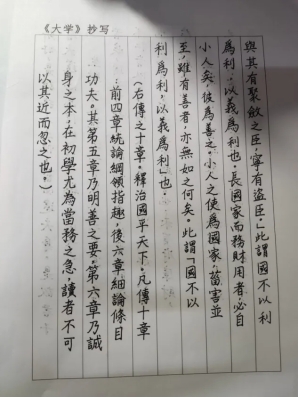 《大学》抄写
與其有聚斂之臣，寧有盜臣。」此謂國不以利
為利，以義為利也。長國家而務財用者，必自
小人矣。彼為善之，小人之使為國家，菑害並
至，雖有善者，亦無如之何矣。此謂「國不以
利為利，以義為利」也
（右傳之十章，釋治國平天下。凡傳十章
：前四章統論綱領指趣，後六章細論條目
功夫。其第五章乃明善之要，第六章乃誠
身之本，在初學尤為當務之急，讀者不可
以其近而忽之也。）